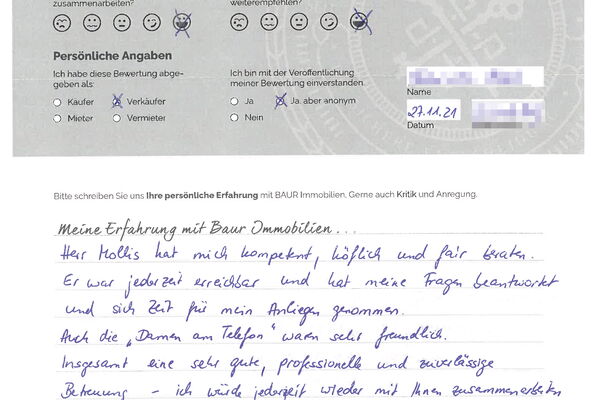 zusammenarbeiten?
weiterempfehlen?
Persönliche Angaben
Ich habe diese Bewertung abge-
geben als:
Käufer
Verkäufer
Mieter
Vermieter
Ich bin mit der Veröffentlichung
meiner Bewertung einverstanden.
Ja
Ja, aber anonym
Nein
Name
27.11.21
Datum
Bitte schreiben Sie uns Ihre persönliche Erfahrung mit BAUR Immobilien. Gerne auch Kritik und Anregung.
Meine Erfahrung mit Baur Immobilien...
Herr Mollis hat mich kompetent, höflich und fair beraten.
Er war jederzeit erreichbar und hat meine Fragen beantwortet
und sich Zeit für mein Anliegen genommen.
Auch die „Damen am Telefon" waren sehr freundlich.
Insgesamt eine sehr gute, professionelle und zuverlässige
Betreuung – ich würde jederzeit wieder mit Ihnen zusammenarbeiten